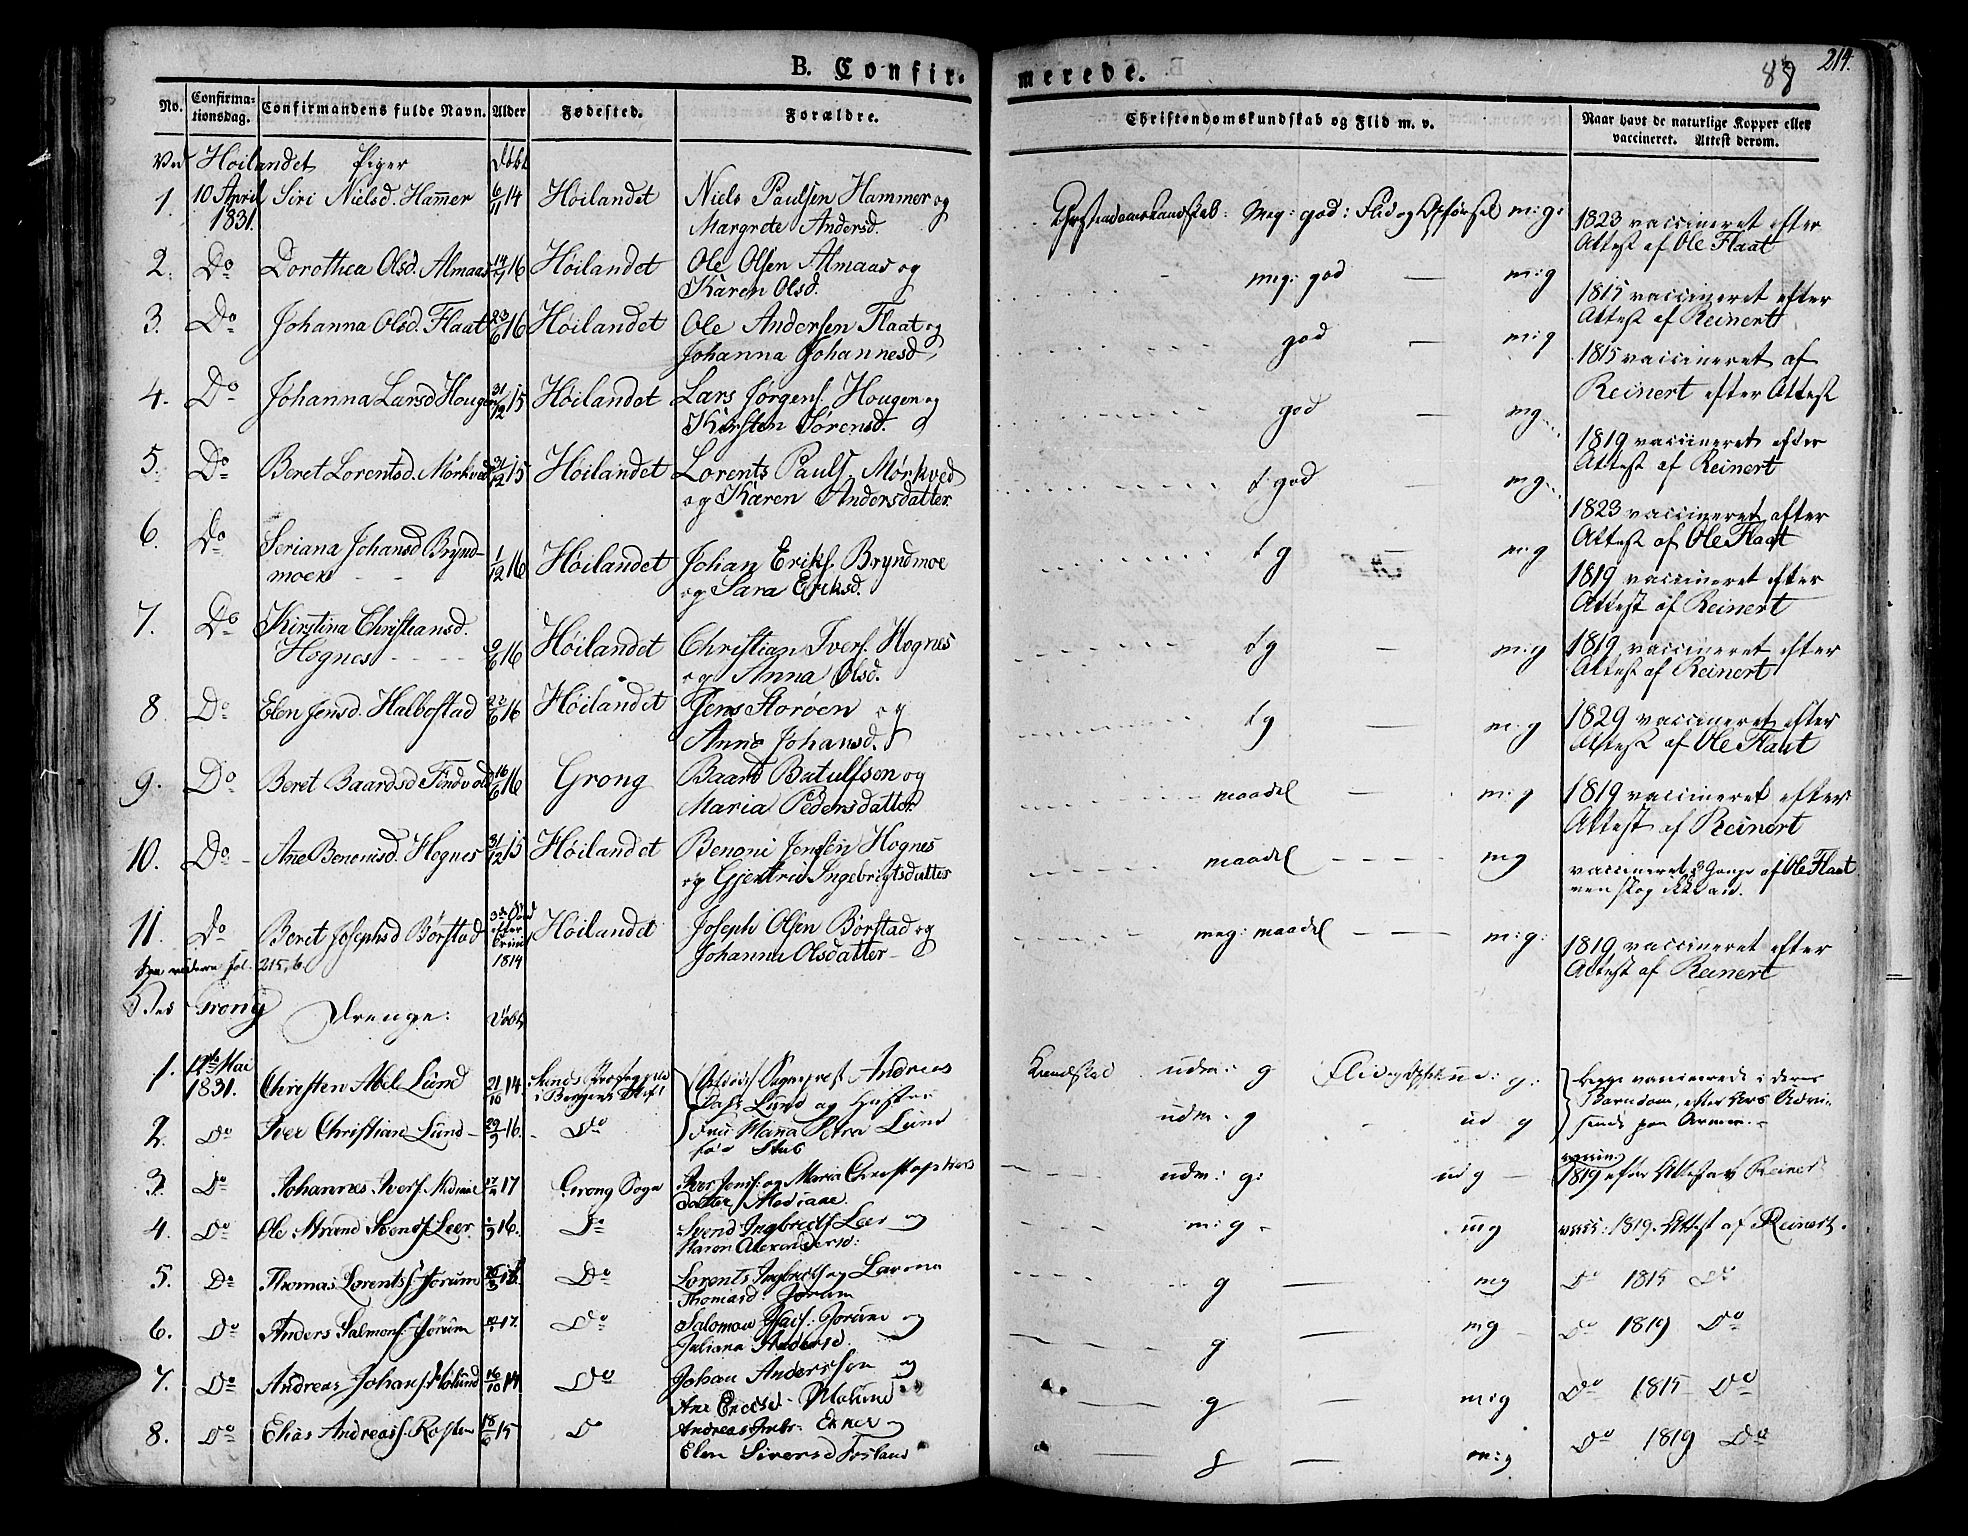 B. Confir-
merede.
88
214.
No.
Confirma-
tionsdag.
Confirmandens fulde Navn.
Alder
Fødested.
Forældre.
Christendomskundskab og Flid m. v.
Naar havt de naturlige Kopper eller
vaccineret. Attest derom.
Ved Høilandet Piger Døbt
1. 10 April Siri Nielsd. Hammer 6/11 14 Høilandet Niels Paulsen Hammer og
1831. Margrete Andersd.
Meg: god: Flid og Opførsel m:g:
1823 vaccineret efter
Attest af Ole Flaat
2. Do Dorothea Olsd. Almaas 16 Høilandet Ole Olsen Almaas og
Karen Olsd.
meg: god — m:g
1815 vaccineret efter
Attest af Reinert
3. Do Johanna Olsd. Flaat 23/6 16 Høilandet Ole Andersen Flaat og
Johanna Johannesd
god — m:g
1815 vaccineret af
Reinert efter Attest
4. Do Johanna Larsd Hougen 31/12 15 Høilandet Lars Jørgens. Hougen og
Kirsten Sørensd.
god — mg
1819 vaccineret efter
Attest af Reinert
5. Do Beret Lorentsd. Mørkved 31/12 15 Høilandet Lorents Pauls Mørkved
og Karen Andersdatter
t god — mg
1823 vaccineret efter
Attest af Ole Flaat
6. Do Seriana Johansd Brynd-
moen 1/12 16 Høilandet Johan Eriks. Bryndmoe
og Sara Eriksd.
t g — m:g
1819 vaccineret efter
Attest af Reinert
7. Do Kirstina Christiansd.
Hognes 16 Høilandet Christian Ivers. Hognes
og Anna Olsd.
t g — m:g
1819 vaccineret efter
Attest af Reinert
8. Do Elen Jensd. Halbostad 22/6 16 Høilandet Jens Storøen og
Anna Johansd.
t g — m:g
1829 vaccineret efter
Attest af Ole Flaat
9. Do Beret Baardsd Tindvold 16/6 16 Grong Baard Batulfsen og
Maria Pedersdatter
maadel — m:g
1819 vaccineret efter
Attest af Reinert
10. Do Ane Benonisd. Hognes 31/12 15 Høilandet Benoni Jensen Hognes
og Gjertrud Ingebrigtsdatter
maadel — mg
vaccineret 2 Gange af Ole Flaat
men slog ikke an.
11. Do Beret Josephsd Børstad 3de Sønd efter Trinit 1814 Høilandet Joseph Olsen Børstad og
215, b. Johanna Olsdatter
meg: maadel — m:g:
1819 vaccineret efter
Attest af Reinert
Ved Grong Drenge: Døbt
1. 12te Mai
1831. Christen Abel Lund 21/10 14.
i Bergens Stift
Sognepræst Andreas
Dass Lund og Hustru
udm: g Flid og ud: g:
vaccinerede i deres
Barndom, efter
paa Armen.
2. Do Iver Christian Lund 29/3 16. Do
Fru Petra Lund
fød Stub
udm: g ud g
3. Do Johannes Ivers. 17 Grong Sogn Iver Jens. og Maria Christophers
datter Mediaae
udm: g: ud g
vaccin:
1819 efter Attest af Reinert
4. Do Ole Strand Svends Leer 16. Do Svend Ingbrits Leer og
Maren Alexandersd:
m: g mg
vacc: 1819. Attest af Reinert.
5. Do Thomas Lorents. Jørum 16. Do Lorents Ingbrits og Lavina
Thomasd. Jørum
g — mg
Do 1815 Do
6. Do Anders Salmons. Jørum 17. Do Salomon Jørum og
Juliana Andersd
g — mg
Do 1819 Do
7. Do Andreas Johans. Molund 16/10 14 Do Johan Anderssen og
Ane Ericksd. Molund
g — m:g
Do 1815 Do
8. Do Elias Andreass. Rosten 18/6 15 Do Andreas Ekker og
Elen Siversd Fosland
g — m:g
Do 1819 Do